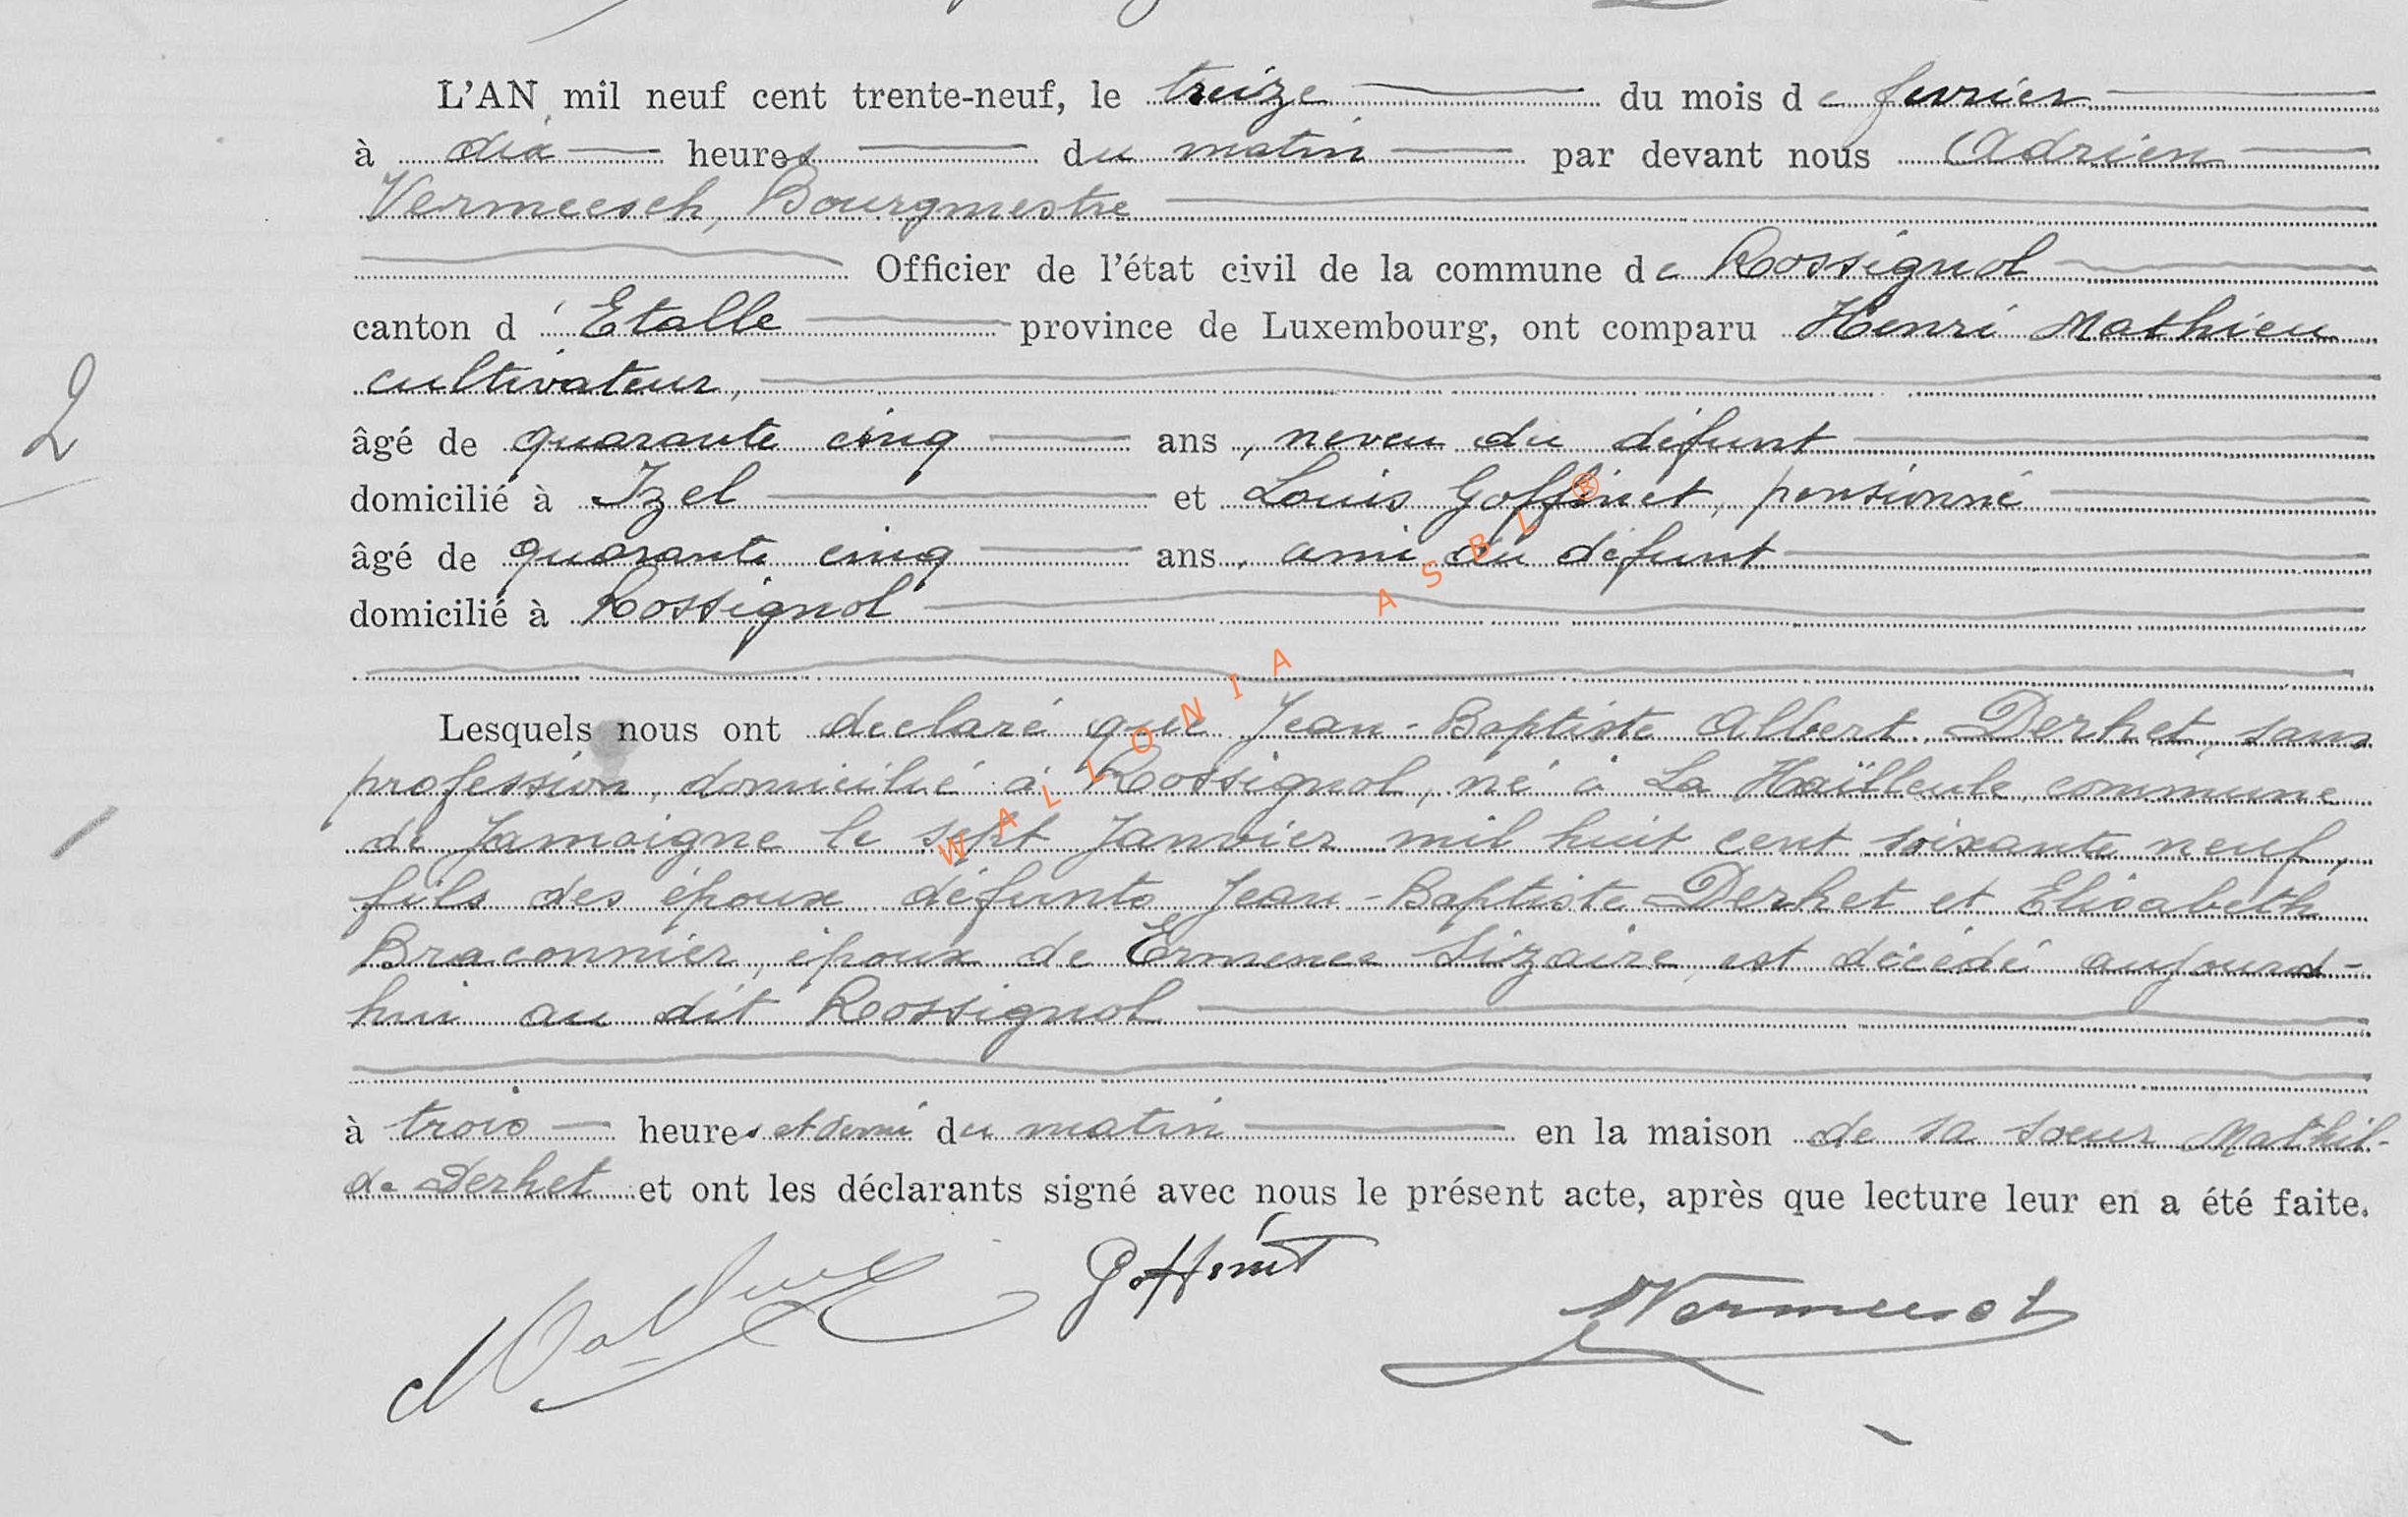 L'AN mil neuf cent trente-neuf, le treize du mois de fevrier
à dix heures du matin par devant nous Adrien
Vermeesch, Bourgmestre
Officier de l'état civil de la commune de Rossignol
canton d'Etalle province de Luxembourg, ont comparu Henri Mathieu
cultivateur,
2
âgé de quarante cinq ans, neveu du défunt
domicilié à Izel et Louis Goffinet, pensionné
âgé de quarante cinq ans, ami du défunt
domicilié à Rossignol
Lesquels nous ont declaré que Jean-Baptiste Albert Derhet, sans
profession, domicilié à Rossignol, né à La Haïlleule, commune
de Jamoigne le sept Janvier mil huit cent soixante neuf,
fils des époux défunts Jean-Baptiste Derhet et Elisabeth
Braconnier, époux de Ermence Lizaire, est décédé aujourd-
hui au dit Rossignol
à trois heures et demi du matin en la maison de sa soeur Mathil-
de Derhet et ont les déclarants signé avec nous le présent acte, après que lecture leur en a été faite.
Goffinet
Vermeesch
WALLONIA ASBL ®